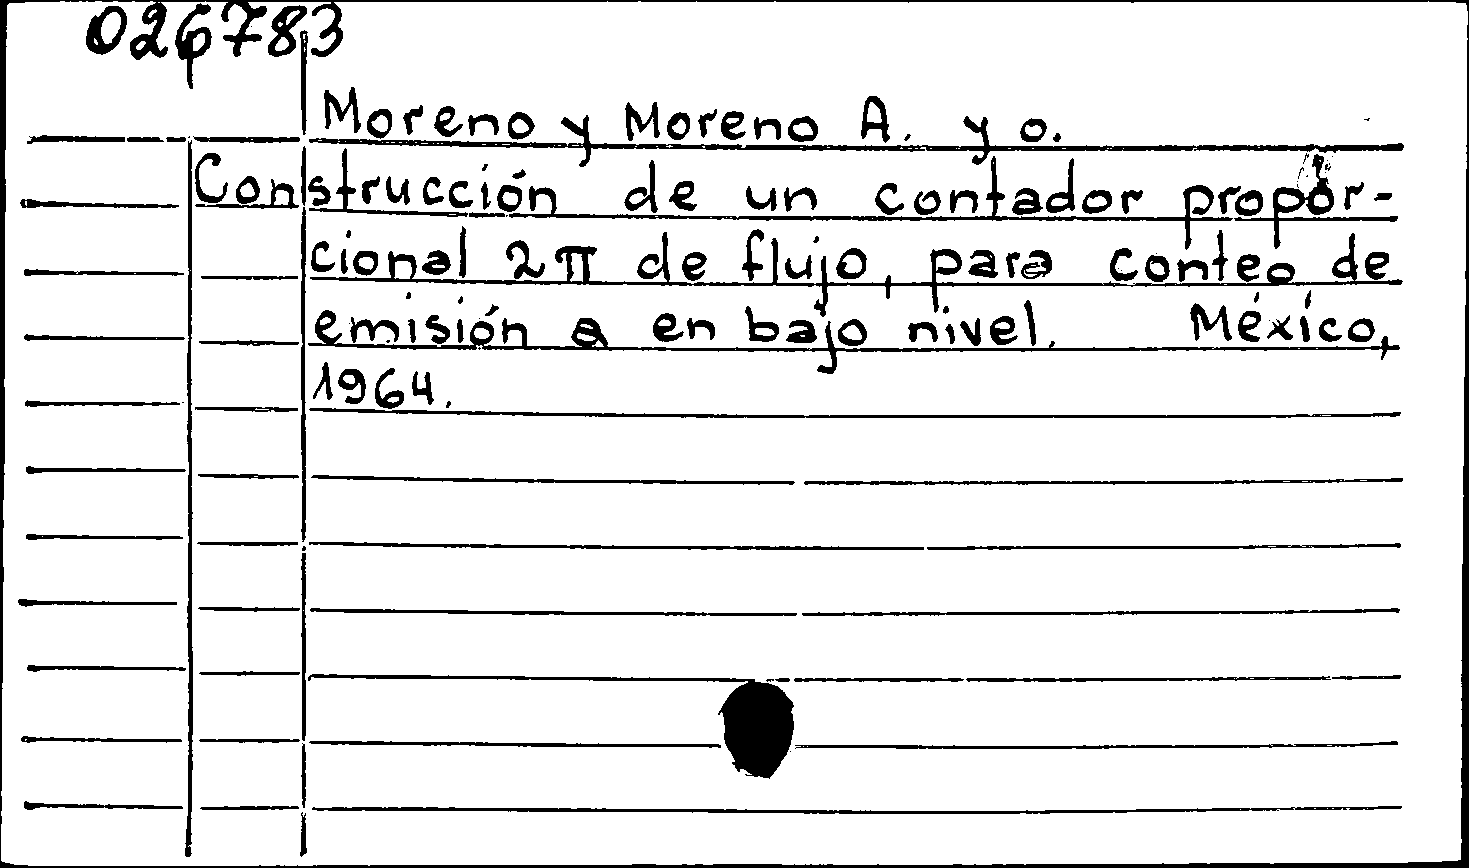 026783
Moreno y Moreno A. y o.
Construcción de un contador propor-
cional 2π de flujo, para conteo de
emisión a en bajo nivel. México,
1964.